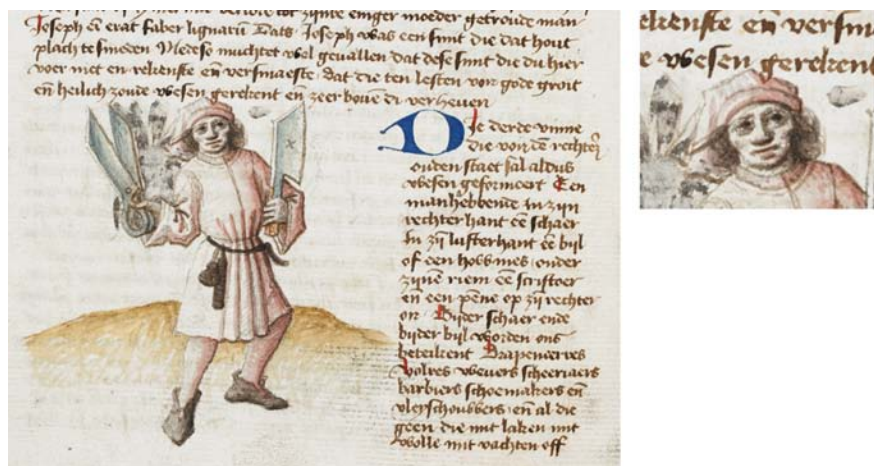 Joseph en̄ erat faber lignariū Dats Joseph was een smit die dat hout
plach te smeden Mede se muchtet wel gevallen dat dese smit die du hier
voer met en rekenste en̄ versmaeste dat die ten lesten von gode groit
en̄ heilich zoude wesen gerekent en̄ zeer boven di verheven
Die derde vinne
die von dē rechtē
ouden staet sal aldus
wesen geformeert Een
man hebbende in zijn
rechter hant eē schaer
in zij lufterhant eē bijl
of een houmes onder
zijnē riem eē scriftoer
en een pēne op zij rechter
or Bijder schaer ende
bijder bijl worden ons
beteikent Drapenierres
volres wevers scheeriaers
barbiers schoemakers en̄
vleyschouwers en̄ al die
geen die mit laken mit
wolle mit vachten off
ekenste en̄ versm
e wesen gerekent